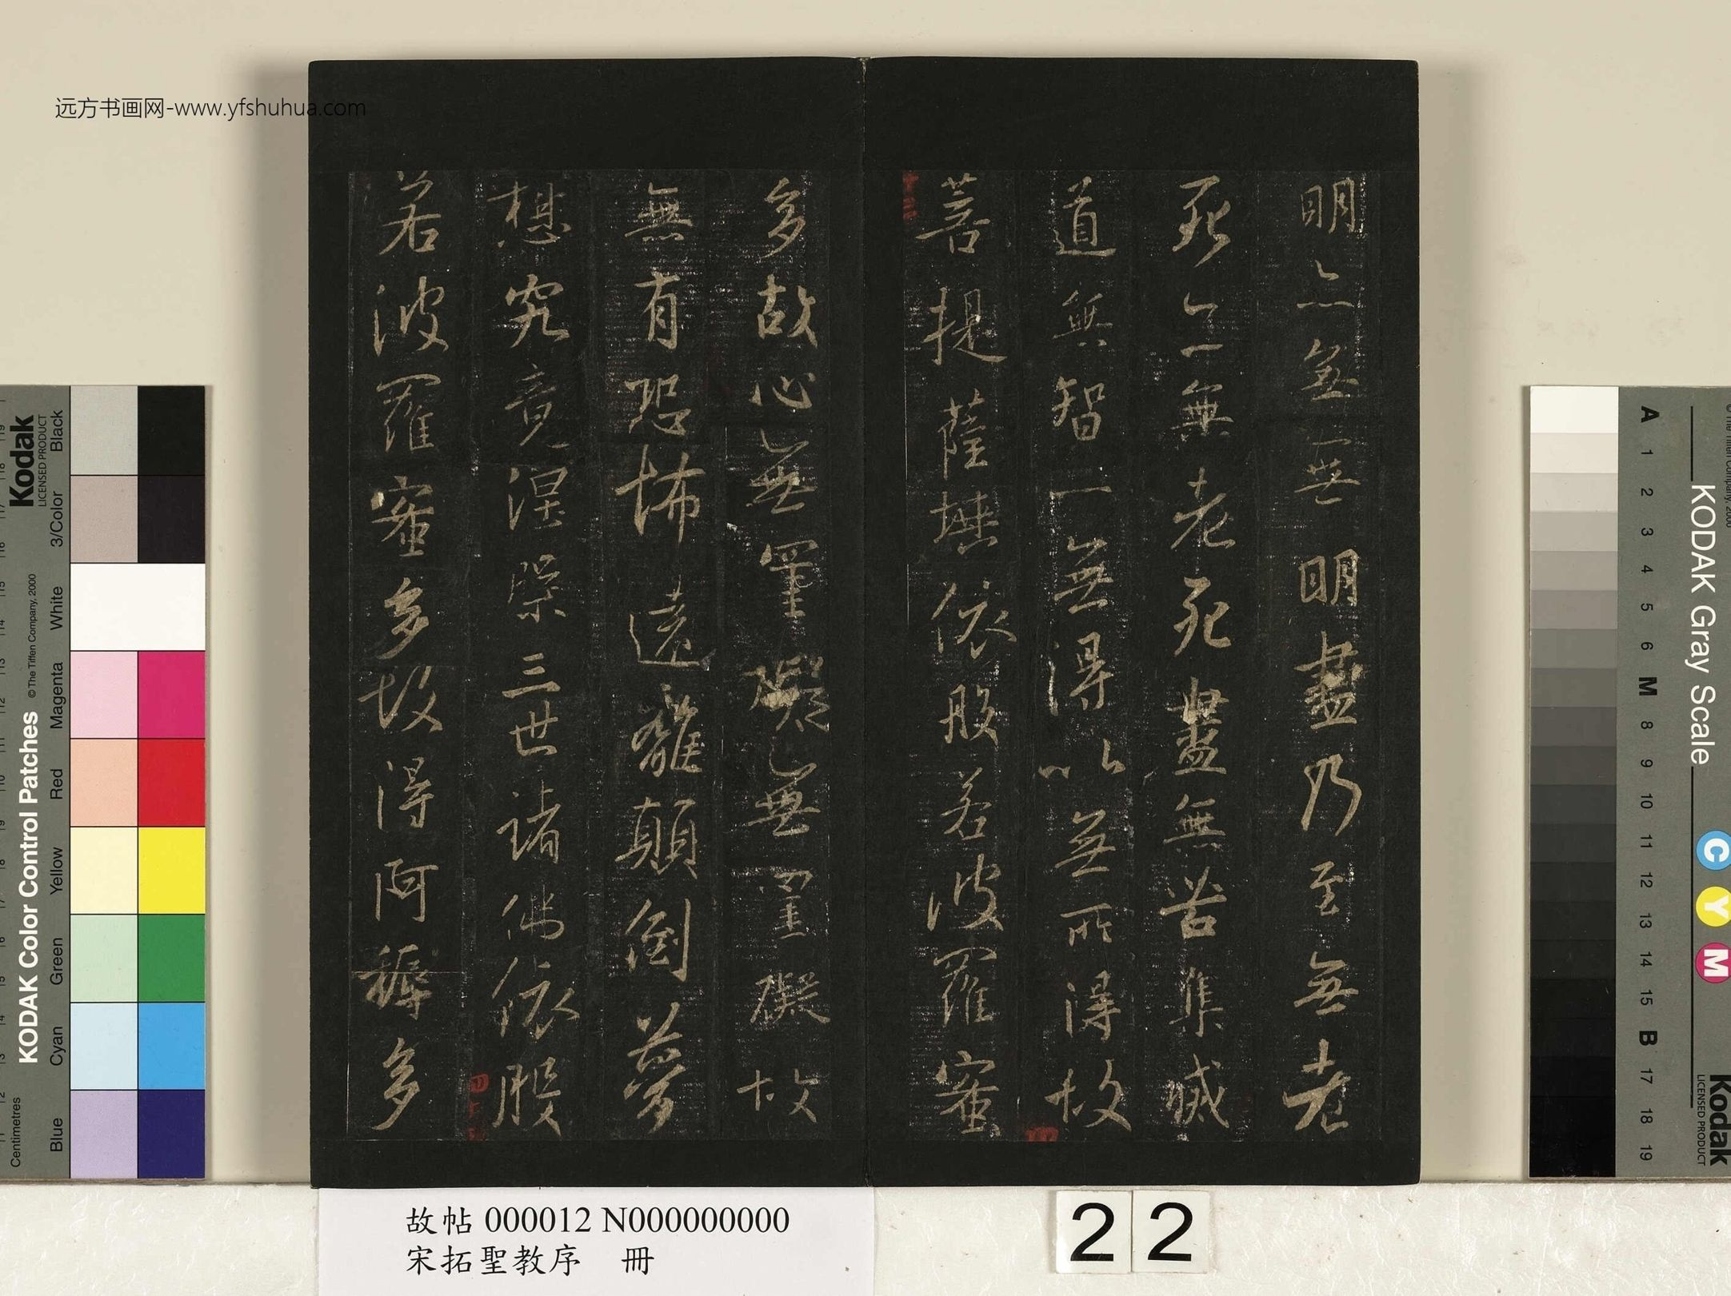 远方书画网-www.yfshuhua.com
明亦無無明盡乃至無老
死亦無老死盡無苦集滅
道無智亦無得以無所得故
菩提薩埵依般若波羅蜜
多故心無罣礙無罣礙故
無有恐怖遠離顛倒夢
想究竟涅槃三世諸佛依般
若波羅蜜多故得阿耨多
故帖 000012 N000000000
宋拓聖教序 冊
22
Kodak
LICENSED PRODUCT
KODAK Color Control Patches
© The Tiffen Company, 2000
Centimetres
Blue
Cyan
Green
Yellow
Red
Magenta
White
3/Color
Black
KODAK Gray Scale
A 1 2 3 4 5 6 M 8 9 10 11 12 13 14 15 B 17 18 19
C
Y
M
Kodak
LICENSED PRODUCT